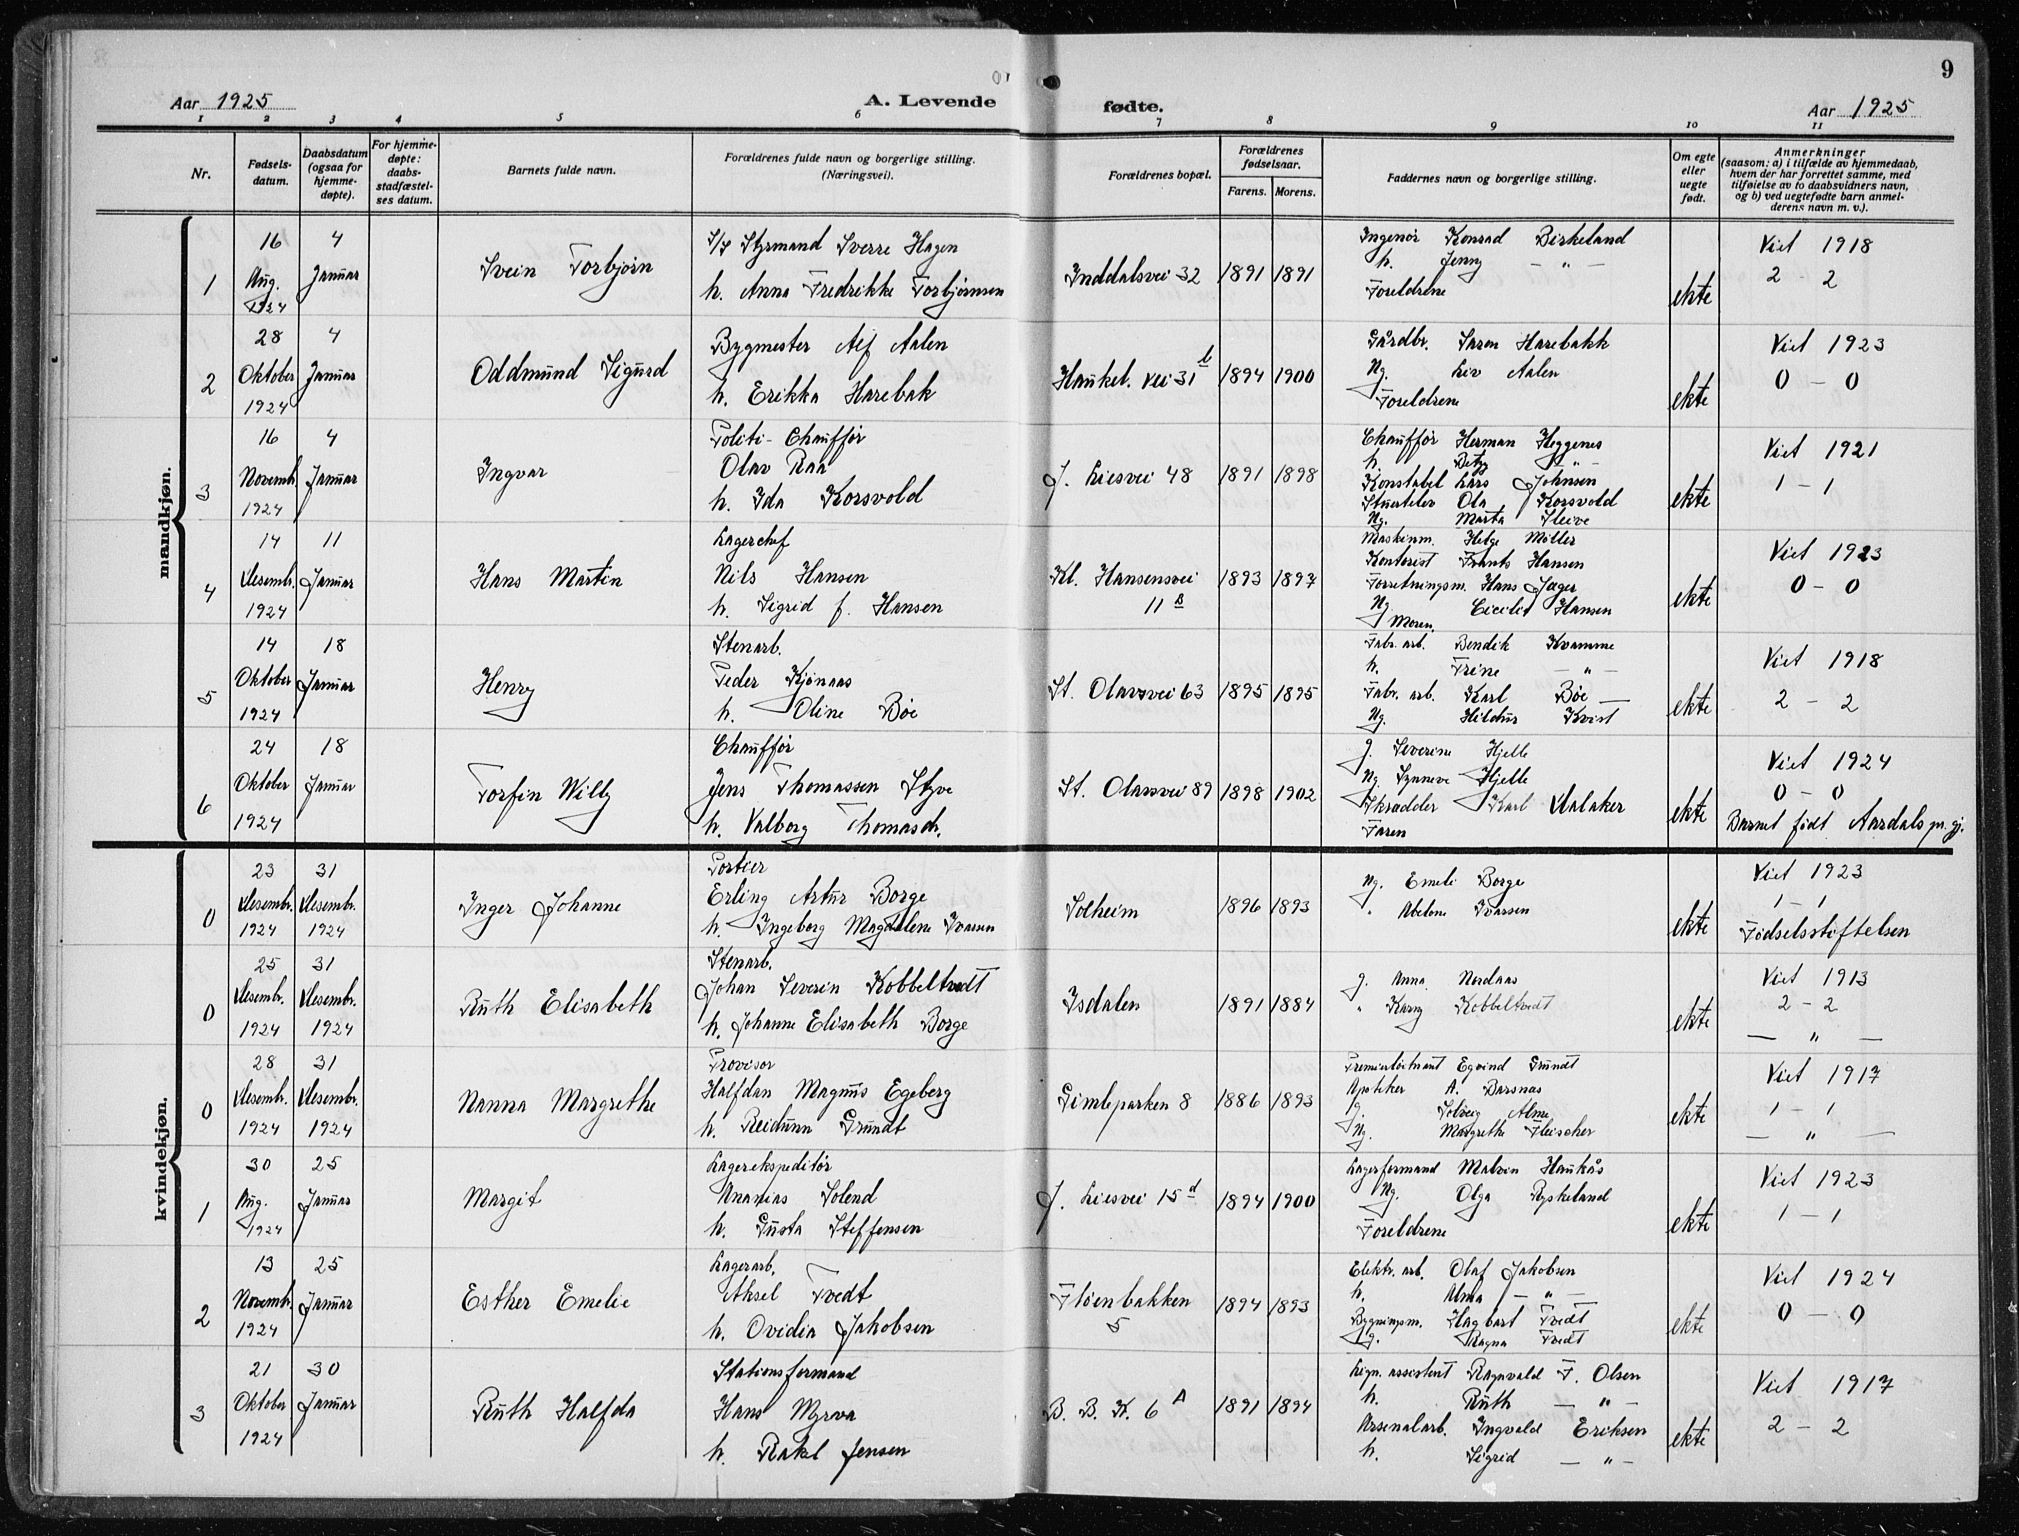 9
Aar 1925
A. Levende fødte.
Aar 1925
1 2 3 4 5 6 7 8 9 10 11
Nr.
Fødsels-
datum.
Daabsdatum
(ogsaa for
hjemme-
døpte).
For hjemme-
døpte:
daabs-
stadfæstel-
ses datum.
Barnets fulde navn.
Forældrenes fulde navn og borgerlige stilling.
(Næringsvei).
Forældrenes bopæl.
Forældrenes
fødselsaar.
Farens. Morens.
Faddernes navn og borgerlige stilling.
Om egte
eller
uegte
født.
Anmerkninger
(saasom: a) i tilfælde av hjemmedaab,
hvem der har forrettet samme, med
tilføielse av to daabsvidners navn,
og b) ved uegtefødte barn anmel-
derens navn m. v.).
mandkjøn.
1
16
Aug.
1924
4
Januar
Svein Torbjørn
S/S Styrmand Sverre Hagen
h. Anna Fredrikke Torbjørnsen
Inddalsvei 32
1891 1891
Ingenør Konrad Birkeland
h. Jenny — " —
Foreldrene
ekte
Viet 1918
2 - 2
2
28
Oktober
1924
4
Januar
Oddmund Sigurd
Bygmester Alf Aalen
h. Erikka Harebak
Haukel. vei 31 b
1894 1900
Gårdbr. Saren Harebakk
Ug. Liv Aalen
Foreldrene
ekte
Viet 1923
0 - 0
3
16
Novemb.
1924
4
Januar
Ingvar
Politi- Chauffør
Olav Raa
h. Ida Korsvold
J. Liesvei 48
1891 1898
Chauffør Herman Heggenes
h. Betzy — " —
Konstabel Lars Johnsen
Ola Korsvold
Ug. Marta Sleive
ekte
Viet 1921
1 - 1
4
14
Desemb.
1924
11
Januar
Hans Martin
Lagerchef
Nils Hansen
h. Sigrid f. Hansen
Kl. Hansensvei
11 B
1893 1897
Maskinm. Helge Møller
Kontorist Frants Hansen
Forretningsm. Hans Jæger
Ug. Cicelie Hansen
Moren
ekte
Viet 1923
0 - 0
5
14
Oktober
1924
18
Januar
Henry
Stenarb.
Peder Kjønaas
h. Oline Bøe
St. Olavsvei 63
1895 1895
Fabr. arb. Bendik Kvamme
h. Trine — " —
Fabr. arb. Karl Bøe
Ug. Hildur Kvist
ekte
Viet 1918
2 - 2
6
24
Oktober
1924
18
Januar
Torfin Willy
Chauffør
Jens Thomassen Styve
h. Valborg Thomasdr.
St. Olavsvei 89
1898 1902
g. Severine Hjelle
Ug. Synneve Hjelle
Skradder Karl Aalaker
Faren
ekte
Viet 1924
0 - 0
Barnet født Aardals pr. gj.
kvindekjøn.
0
23
Desemb.
1924
31
Desemb.
1924
Inger Johanne
Portier
Erling Artur Borge
h. Ingeborg Magdalene Ivarsen
Solheim
1896 1893
Ug. Emeli Borge
" Abelone Ivarsen
ekte
Viet 1923
1 - 1
Fødselsstiftelsen
0
25
Desemb.
1924
31
Desemb.
1924
Ruth Elisabeth
Stenarb.
Johan Severin Kobbeltvedt
h. Johanne Elisabeth Borge
Isdalen
1891 1884
g. Anna Nordaas
" Karny Kobbeltvedt
ekte
Viet 1913
2 - 2
— " —
0
28
Desemb.
1924
31
Desemb.
1924
Nanna Margrethe
Provisor
Halfdan Magnus Egeberg
h. Reidunn Grundt
Gimleparken 8
1886 1893
Premierløitnant Egvind Grundt
Apotiker A. Barsnas
g. Solveig Alme
Ug. Margrethe Fleischer
ekte
Viet 1917
1 - 1
— " —
1
30
Aug.
1924
25
Januar
Margit
Lagerekspeditør
Ananias Solend
h. Gusta Steffensen
J. Liesvei 15 d
1894 1900
Lagerformand Malvin Haukås
Ug. Olga Ryskeland
Foreldrene
ekte
Viet 1923
1 - 1
2
13
Novemb.
1924
25
Januar
Esther Emelie
Lagerarb.
Aksel Tvedt
h. Ovidia Jakobsen
Fløenbakken
5
1894 1893
Elektr. arb. Olaf Jakobsen
h. Alma — " —
Bygningsm. Hagbart Tvedt
g. Ragna Tvedt
ekte
Viet 1924
0 - 0
3
21
Oktober
1924
30
Januar
Ruth Halfda
Stationsformand
Hans Myrva
h. Rakel Jensen
B. B. K. 6 A
1891 1894
Lign. assistent Ragnvald F. Olsen
h. Ruth — " —
Arsenalarb. Ingvald Eriksen
h. Sigrid — " —
ekte
Viet 1917
2 - 2